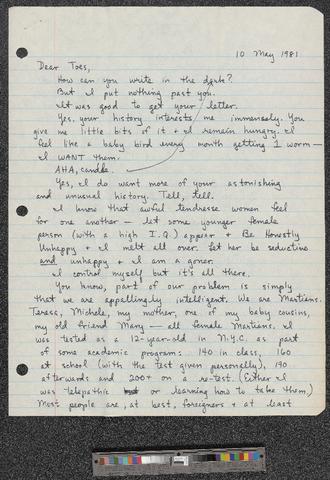 10 May 1981
Dear Toes,
How can you write in the dark?
But I put nothing past you.
It was good to get your letter.
Yes, your history interests me immensely. You
give me little bits of it + I remain hungry. I
feel like a baby bird every month getting 1 worm —
I WANT them.
AHA, candle.
Yes, I do want more of your astonishing
and unusual history. Tell, tell.
I know that awful tendresse women feel
for one another — let some younger female
person (with a high I.Q.) appear + Be Honestly
Unhappy + I melt all over. Let her be seductive
and unhappy + I am a goner.
I control myself but it's all there.
You know, part of our problem is simply
that we are appallingly intelligent. We are Martians.
Teresa, Michele, my mother, one of my baby cousins,
my old friend Mary — all female Martians. I
was tested as a 12-year-old in N.Y.C. as part
of some academic program: 140 in class, 160
at school (with the test given personally), 190
afterwards and 200+ on a re-test. (Either I
was telepathic or learning how to take them.)
Most people are, at best, foreigners + at least